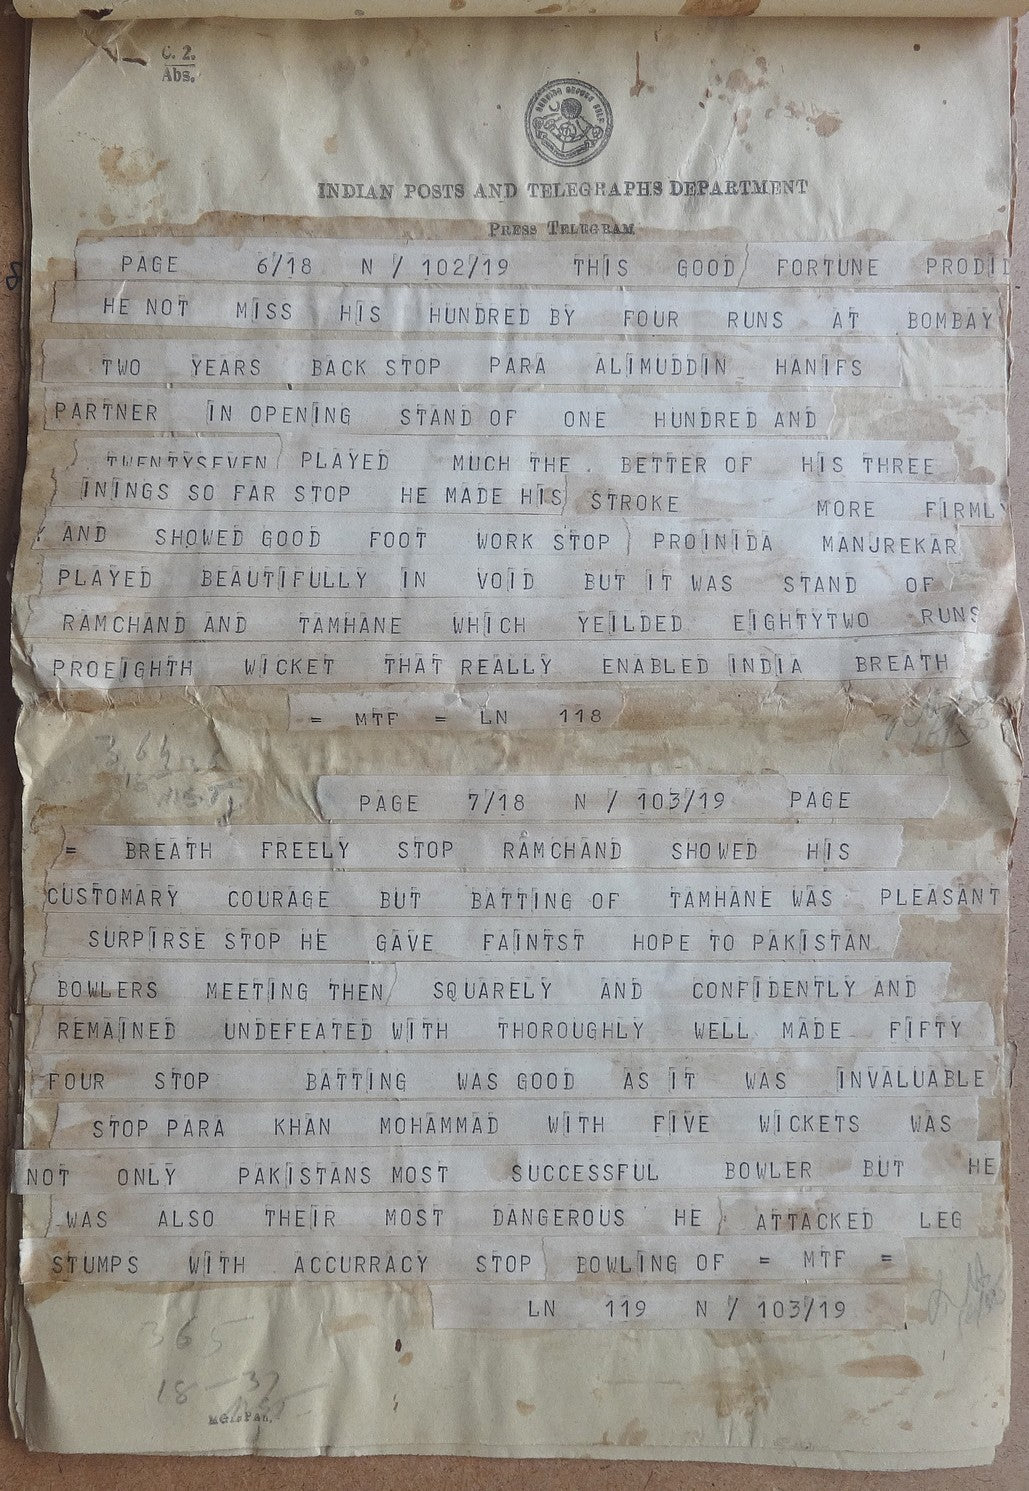 C. 2.
Abs.
INDIAN POSTS AND TELEGRAPHS DEPARTMENT
PRESS TELEGRAM
PAGE 6/18 N / 102/19 THIS GOOD FORTUNE PRODID
HE NOT MISS HIS HUNDRED BY FOUR RUNS AT BOMBAY
TWO YEARS BACK STOP PARA ALIMUDDIN HANIFS
PARTNER IN OPENING STAND OF ONE HUNDRED AND
TWENTYSEVEN PLAYED MUCH THE BETTER OF HIS THREE
ININGS SO FAR STOP HE MADE HIS STROKE MORE FIRMLY
AND SHOWED GOOD FOOT WORK STOP PROINIDA MANJREKAR
PLAYED BEAUTIFULLY IN VOID BUT IT WAS STAND OF
RAMCHAND AND TAMHANE WHICH YEILDED EIGHTYTWO RUNS
PROEIGHTH WICKET THAT REALLY ENABLED INDIA BREATH
= MTF = LN 118
PAGE 7/18 N / 103/19 PAGE
= BREATH FREELY STOP RAMCHAND SHOWED HIS
CUSTOMARY COURAGE BUT BATTING OF TAMHANE WAS PLEASANT
SURPIRSE STOP HE GAVE FAINTST HOPE TO PAKISTAN
BOWLERS MEETING THEN SQUARELY AND CONFIDENTLY AND
REMAINED UNDEFEATED WITH THOROUGHLY WELL MADE FIFTY
FOUR STOP BATTING WAS GOOD AS IT WAS INVALUABLE
STOP PARA KHAN MOHAMMAD WITH FIVE WICKETS WAS
NOT ONLY PAKISTANS MOST SUCCESSFUL BOWLER BUT HE
WAS ALSO THEIR MOST DANGEROUS HE ATTACKED LEG
STUMPS WITH ACCURRACY STOP BOWLING OF = MTF =
LN 119 N / 103/19
365
18-37